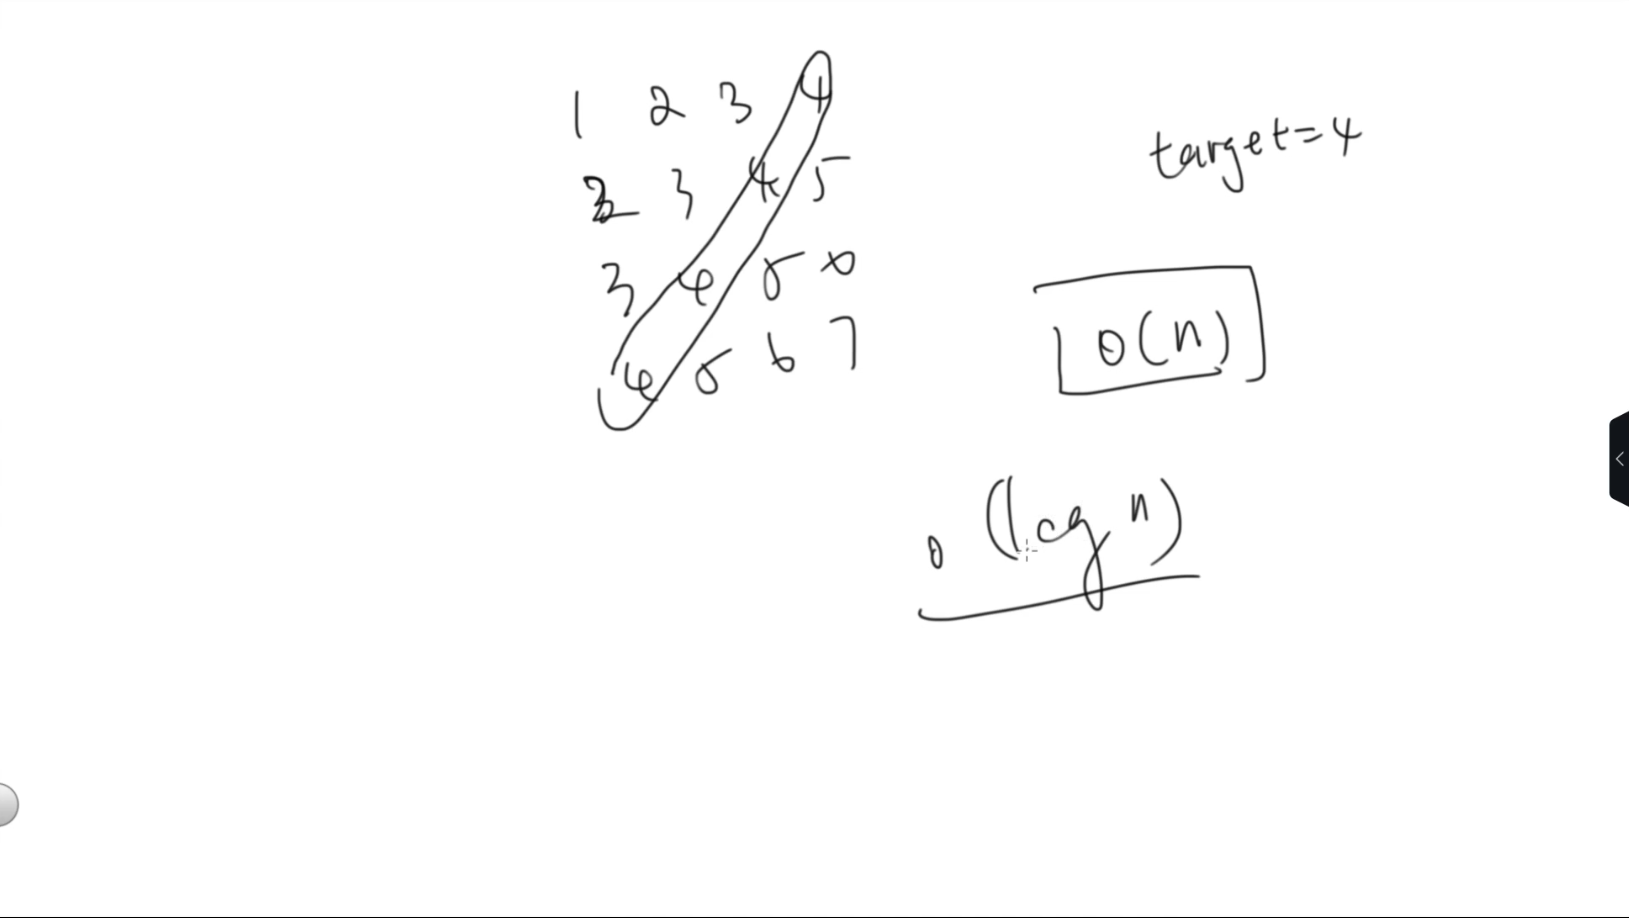 1 2 3 4
2 3 4 5
3 4 5 6
4 5 6 7
target=4
O(n)
O(log n)